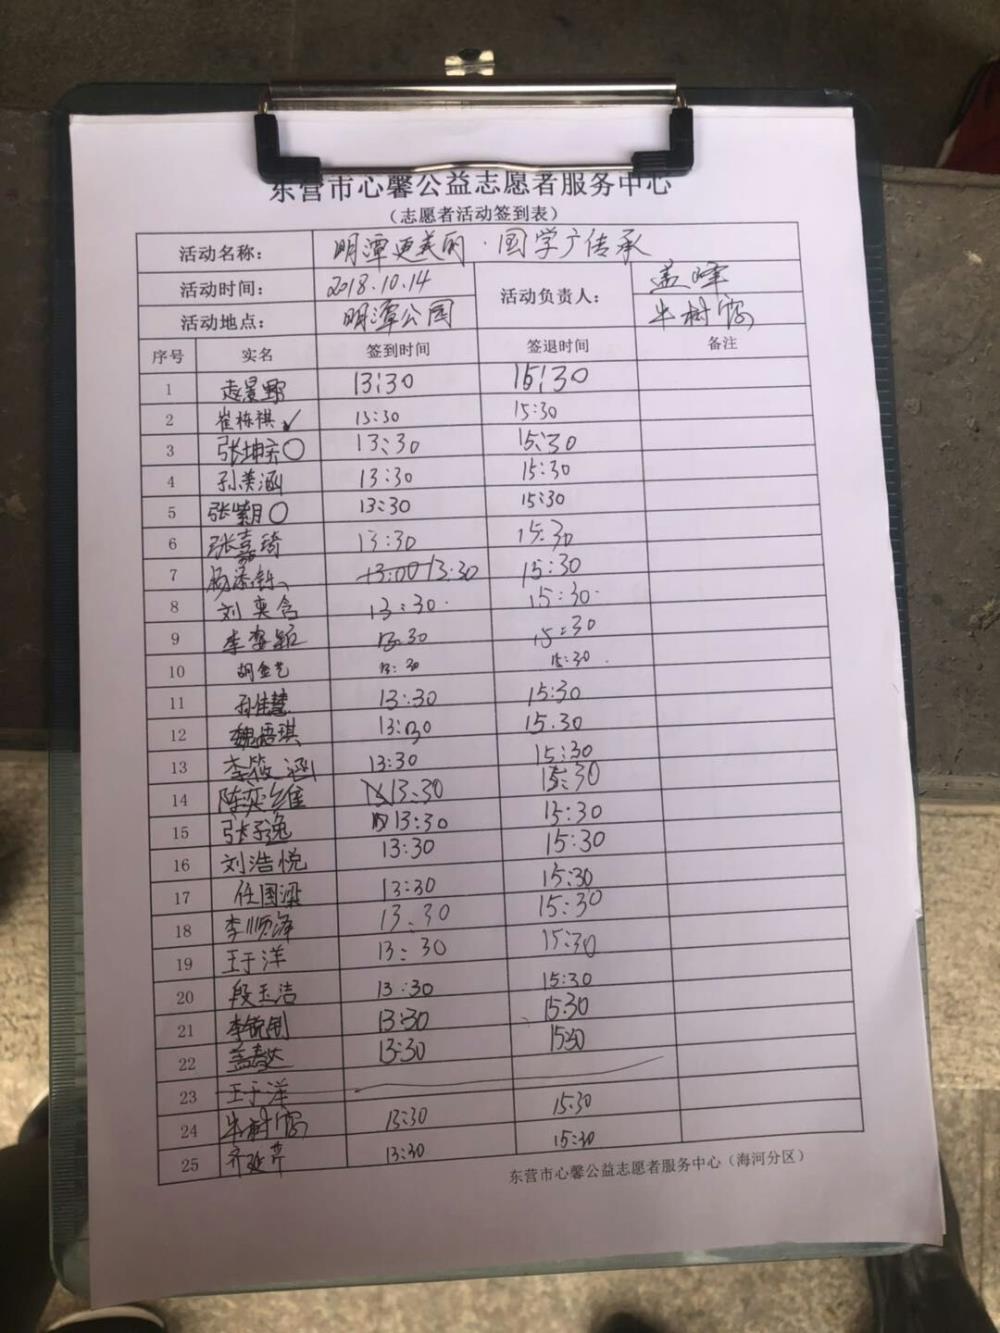 东营市心馨公益志愿者服务中心
（志愿者活动签到表）
活动名称： 明潭更美丽·国学广传承
活动时间： 2018.10.14 活动负责人： 盖峰
活动地点： 明潭公园 牛树
序号 实名 签到时间 签退时间 备注
1 13:30 15:30
2 崔栋祺 ✓ 13:30 15:30
3 张坤 ○ 13:30 15:30
4 孙美涵 13:30 15:30
5 张 ○ 13:30 15:30
6 张嘉琦 13:30 15:30
7 杨添 13:00 13:30 15:30
8 刘奕含 13:30 15:30
9 李 13:30 15:30
10 胡金艺 13:30 15:30
11 孙佳慧 13:30 15:30
12 魏语琪 13:30 15:30
13 李筱涵 13:30 15:30
14 陈奕维 13:30 15:30
15 张子逸 13:30 15:30
16 刘浩悦 13:30 15:30
17 任国梁 13:30 15:30
18 李顺泽 13:30 15:30
19 王于洋 13:30 15:30
20 段玉洁 13:30 15:30
21 李锐 13:30 15:30
22 盖 13:30 15:30
23 王于洋
24 牛树 13:30 15:30
25 齐延芹 13:30 15:30
东营市心馨公益志愿者服务中心（海河分区）